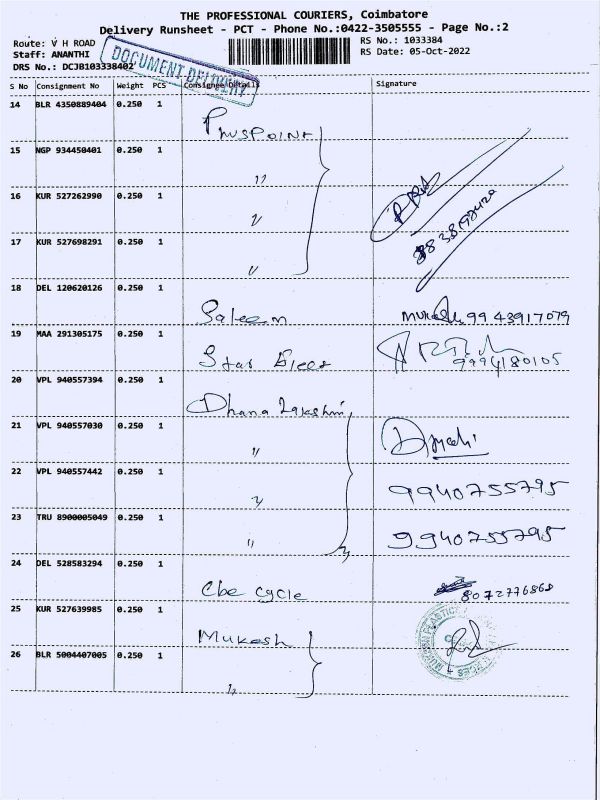 THE PROFESSIONAL COURIERS, Coimbatore
Delivery Runsheet - PCT - Phone No.:0422-3505555 - Page No.:2
Route: V H ROAD RS No.: 1033384
Staff: ANANTHI RS Date: 05-Oct-2022
DRS No.: DCJB103338402
DOCUMENT DELIVERY
S No Consignment No Weight PCS Consignee Details Signature
14 BLR 4350889404 0.250 1 PLUSPOINT
15 NGP 934450401 0.250 1 "
16 KUR 527262990 0.250 1 "
17 KUR 527698291 0.250 1 "
18 DEL 120620126 0.250 1 Saleem Mukesh 99 43917079
19 MAA 291305175 0.250 1 Star 9994180105
20 VPL 940557394 0.250 1 Dhana Lakshmi
21 VPL 940557030 0.250 1 "
22 VPL 940557442 0.250 1 " 9940755795
23 TRU 8900005049 0.250 1 " 9940755795
24 DEL 528583294 0.250 1 Cbe Cycle 8072776868
25 KUR 527639985 0.250 1 Mukesh
26 BLR 5004407005 0.250 1 "